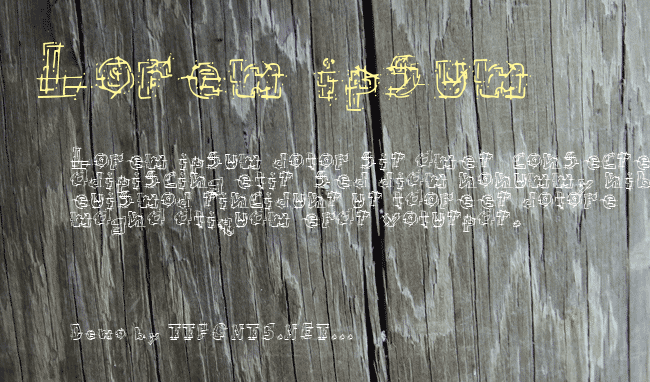 Lorem ipsum
Lorem ipsum dolor sit amet, consecte
adipiscing elit, sed diam nonummy nib
euismod tincidunt ut laoreet dolore
magna aliquam erat volutpat.
Demo by TTFONTS.NET...